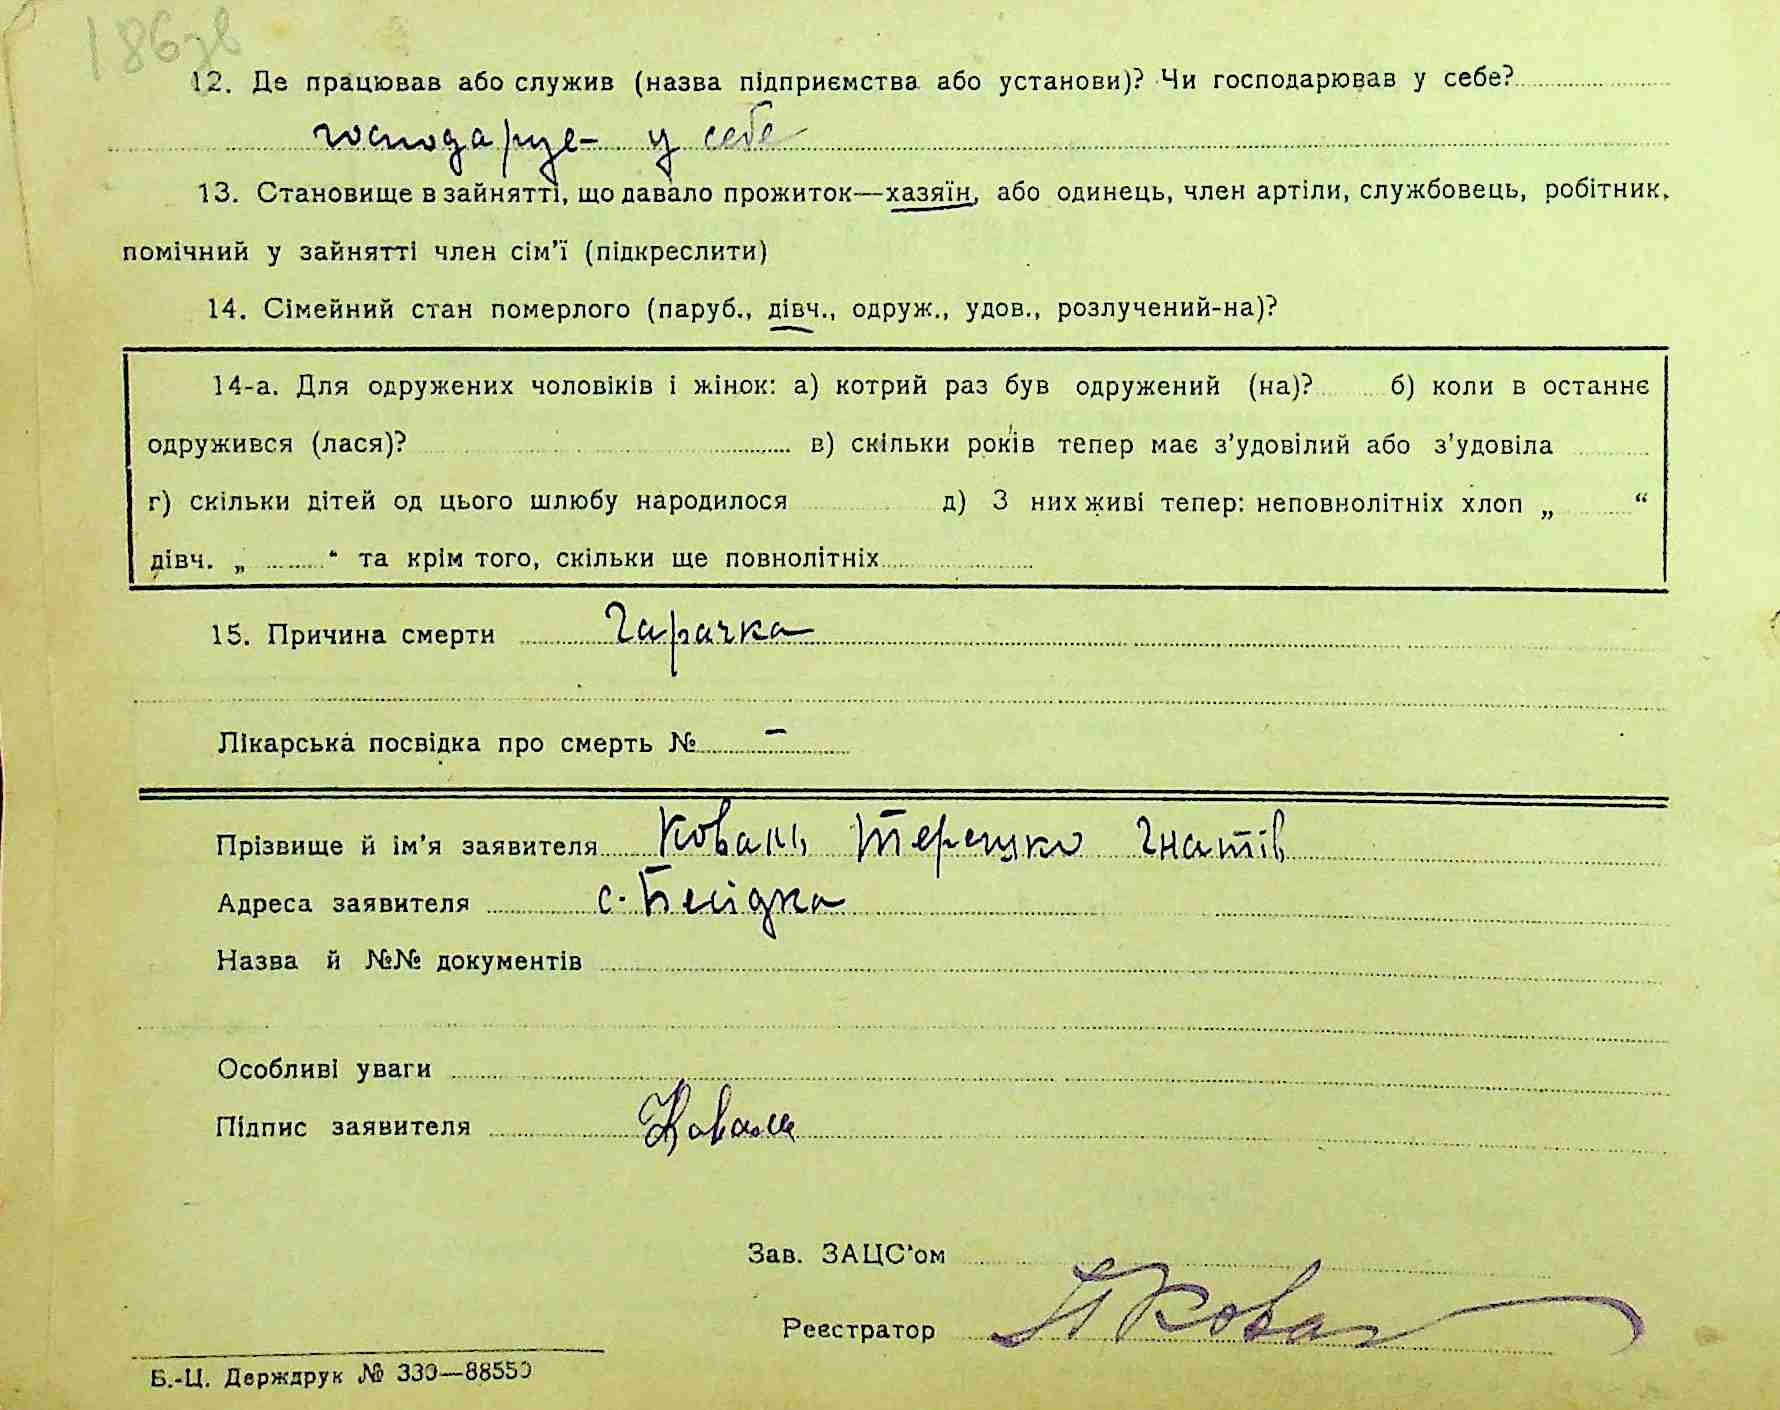 186зв
12. Де працював або служив (назва підприємства або установи)? Чи господарював у себе?
господарує у себе
13. Становище в зайнятті, що давало прожиток—хазяїн, або одинець, член артіли, службовець, робітник,
помічний у зайнятті член сім’ї (підкреслити)
14. Сімейний стан померлого (паруб., дівч., одруж., удов., розлучений-на)?
14-а. Для одружених чоловіків і жінок: а) котрий раз був одружений (на)? б) коли в останнє
одружився (лася)? в) скільки років тепер має з’удовілий або з’удовіла
г) скільки дітей од цього шлюбу народилося д) З них живі тепер: неповнолітніх хлоп „ “
дівч. „ “ та крім того, скільки ще повнолітніх
15. Причина смерти Гарачка
Лікарська посвідка про смерть № –
Прізвище й ім’я заявителя Коваль Терешко Гнатів
Адреса заявителя с. Бесідка
Назва й №№ документів
Особливі уваги
Підпис заявителя Коваль
Зав. ЗАЦС’ом
Реєстратор ПКовал
Б.-Ц. Держдрук № 330—88550